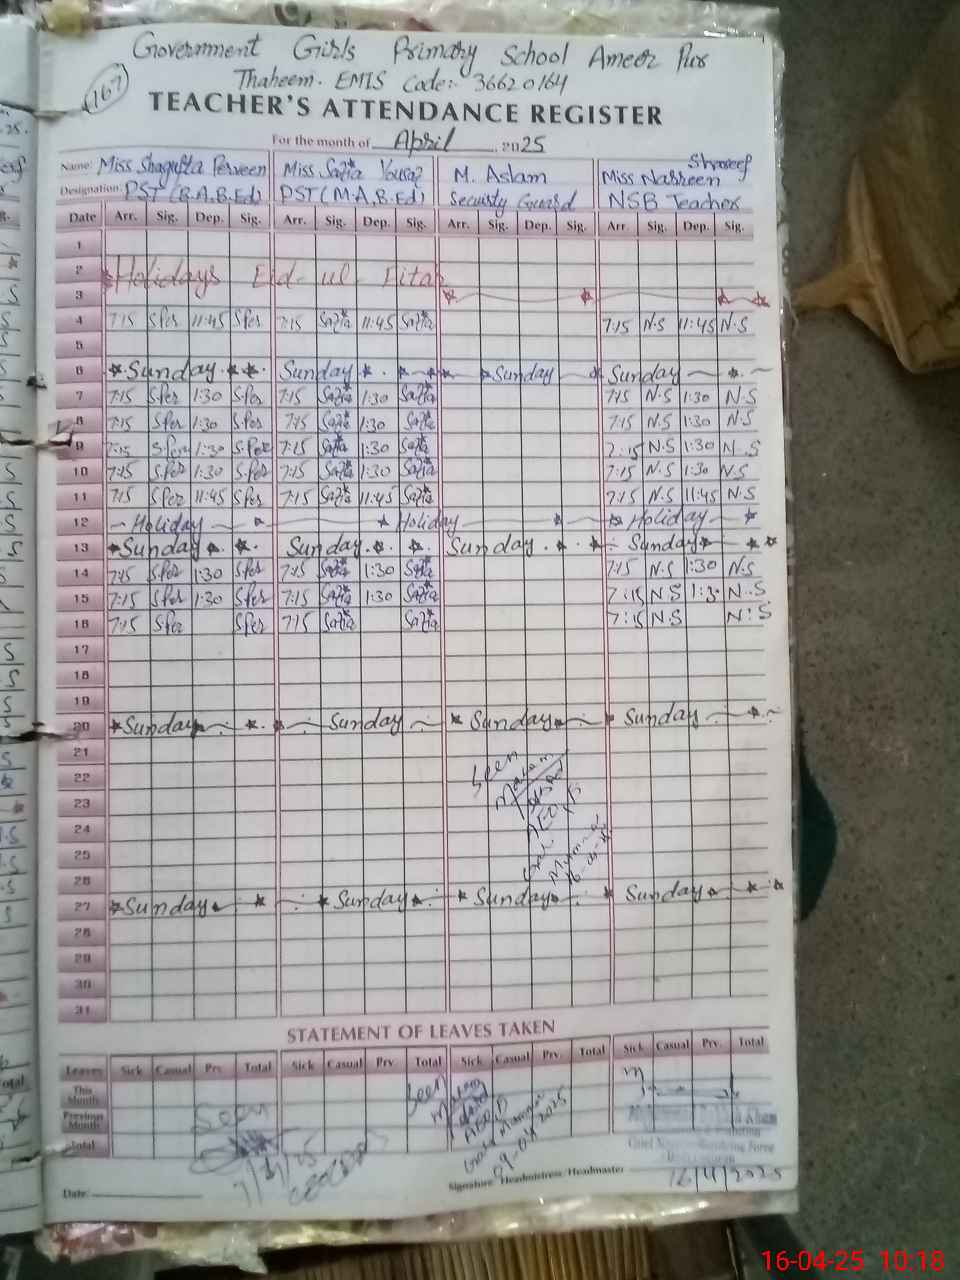 Government Girls Primary School Ameer Pur
Thaheem. EMIS Code:- 36620164
167
TEACHER'S ATTENDANCE REGISTER
For the month of April, 2025
Name: Miss Shagufta Perveen Miss Sazia Yousaf M. Aslam Miss Nasreen Shareef
Designation: PST (B.A,B.Ed) PST (M.A,B.Ed) Security Guard NSB Teacher
Date Arr. Sig. Dep. Sig. Arr. Sig. Dep. Sig. Arr. Sig. Dep. Sig. Arr. Sig. Dep. Sig.
1
2 Holidays Eid-ul-Fitar
3
4 7:15 SPer 11:45 SPer 7:15 Sazia 11:45 Sazia 7:15 N.S 11:45 N.S
5
6 Sunday Sunday Sunday Sunday
7 7:15 SPer 1:30 SPer 7:15 Sazia 1:30 Sazia 7:15 N.S 1:30 N.S
8 7:15 SPer 1:30 SPer 7:15 Sazia 1:30 Sazia 7:15 N.S 1:30 N.S
9 7:15 SPer 1:30 SPer 7:15 Sazia 1:30 Sazia 7:15 N.S 1:30 N.S
10 7:15 SPer 1:30 SPer 7:15 Sazia 1:30 Sazia 7:15 N.S 1:30 N.S
11 7:15 SPer 11:45 SPer 7:15 Sazia 11:45 Sazia 7:15 N.S 11:45 N.S
12 Holiday Holiday Holiday
13 Sunday Sunday Sunday Sunday
14 7:15 SPer 1:30 SPer 7:15 Sazia 1:30 Sazia 7:15 N.S 1:30 N.S
15 7:15 SPer 1:30 SPer 7:15 Sazia 1:30 Sazia 7:15 N.S 1:3 N.S
16 7:15 SPer SPer 7:15 Sazia Sazia 7:15 N.S N.S
17
18
19
20 Sunday Sunday Sunday Sunday
21
22 Seen
23
24
25
26 16-04-25
27 Sunday Sunday Sunday Sunday
28
29
30
31
STATEMENT OF LEAVES TAKEN
Leaves Sick Casual Prv. Total Sick Casual Prv. Total Sick Casual Prv. Total Sick Casual Prv. Total
This Month
Previous Month Seen Seen
Total
09-04-2025
Signature Headmistress/Headmaster
16/4/2025
Date:
16-04-25 10:18